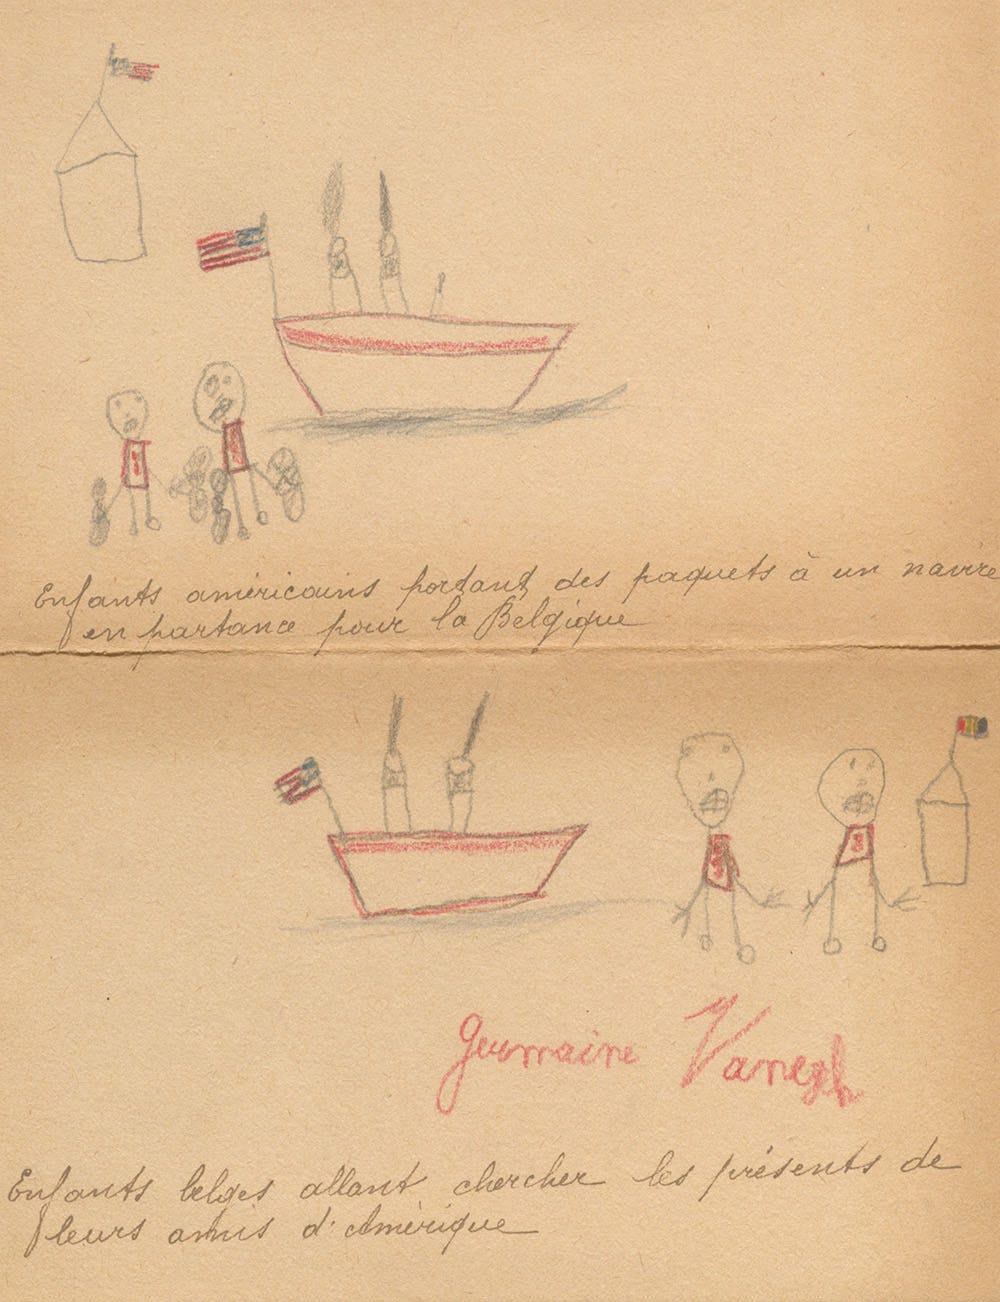 Enfants américains portant des paquets à un navire
en partance pour la Belgique
Germaine Vanegh
Enfants belges allant chercher les présents de
leurs amis d'Amérique